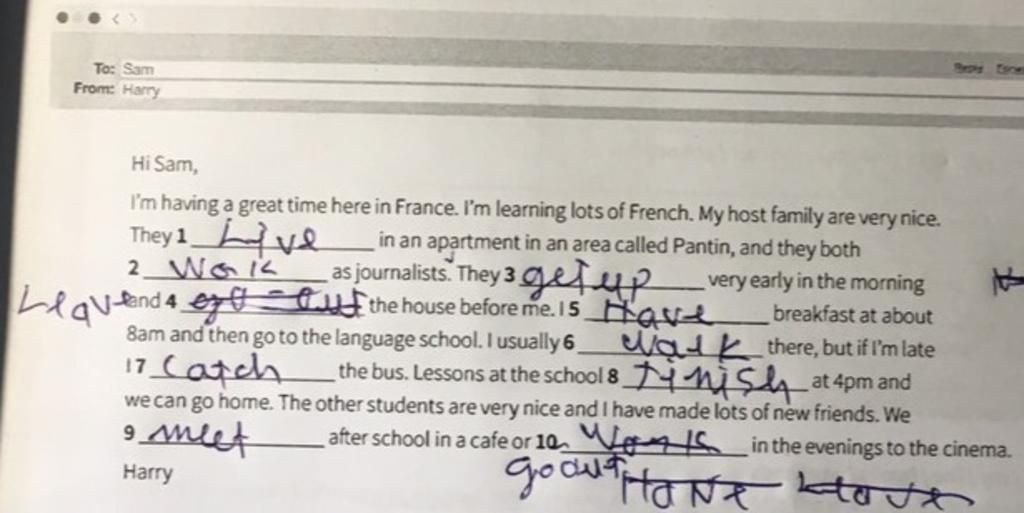 To: Sam
From: Harry
Hi Sam,
I'm having a great time here in France. I'm learning lots of French. My host family are very nice.
They 1 Live in an apartment in an area called Pantin, and they both
2 Work as journalists. They 3 get up very early in the morning
Leave and 4 go out the house before me. I 5 Have breakfast at about
8am and then go to the language school. I usually 6 walk there, but if I'm late
I 7 Catch the bus. Lessons at the school 8 finish at 4pm and
we can go home. The other students are very nice and I have made lots of new friends. We
9 meet after school in a cafe or 10 Work in the evenings to the cinema.
Harry go out Have Have